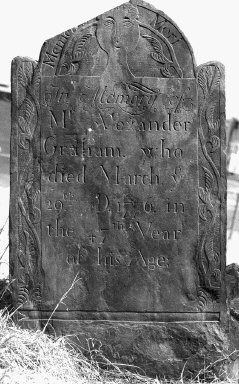 Memento Mori
In Memory of
Mr. Alexander
Graham, who
died March ye
29th A.D. in
the 47th Year
of his Age.